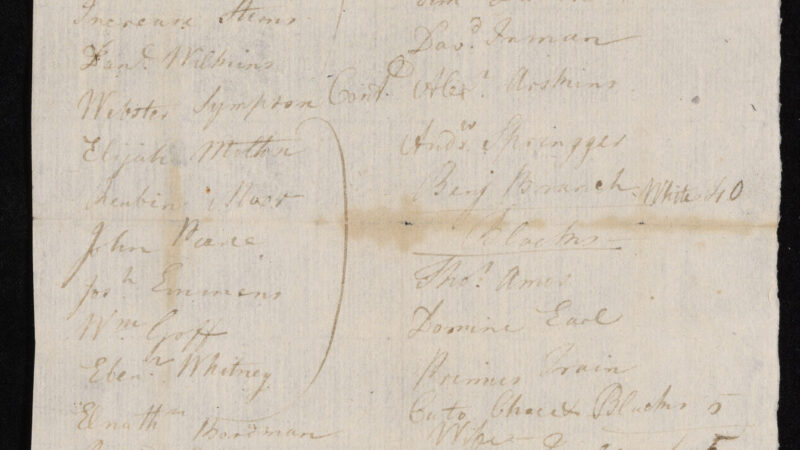 Increase Stems
Dan.d Wilkins
Webster Sympson Cont.d
Elijah
John Peare
Jos.h Emmens
W.m Goff
Eben.r Whitney
Elnath.n Boardman
Dav.d Inman
Alex.r Arskins
And.w Springger
Benj Branch White 40
Blacks
Tho.s Ames
Domine Earl
Primes Train
Cato Chace Blacks 5
5